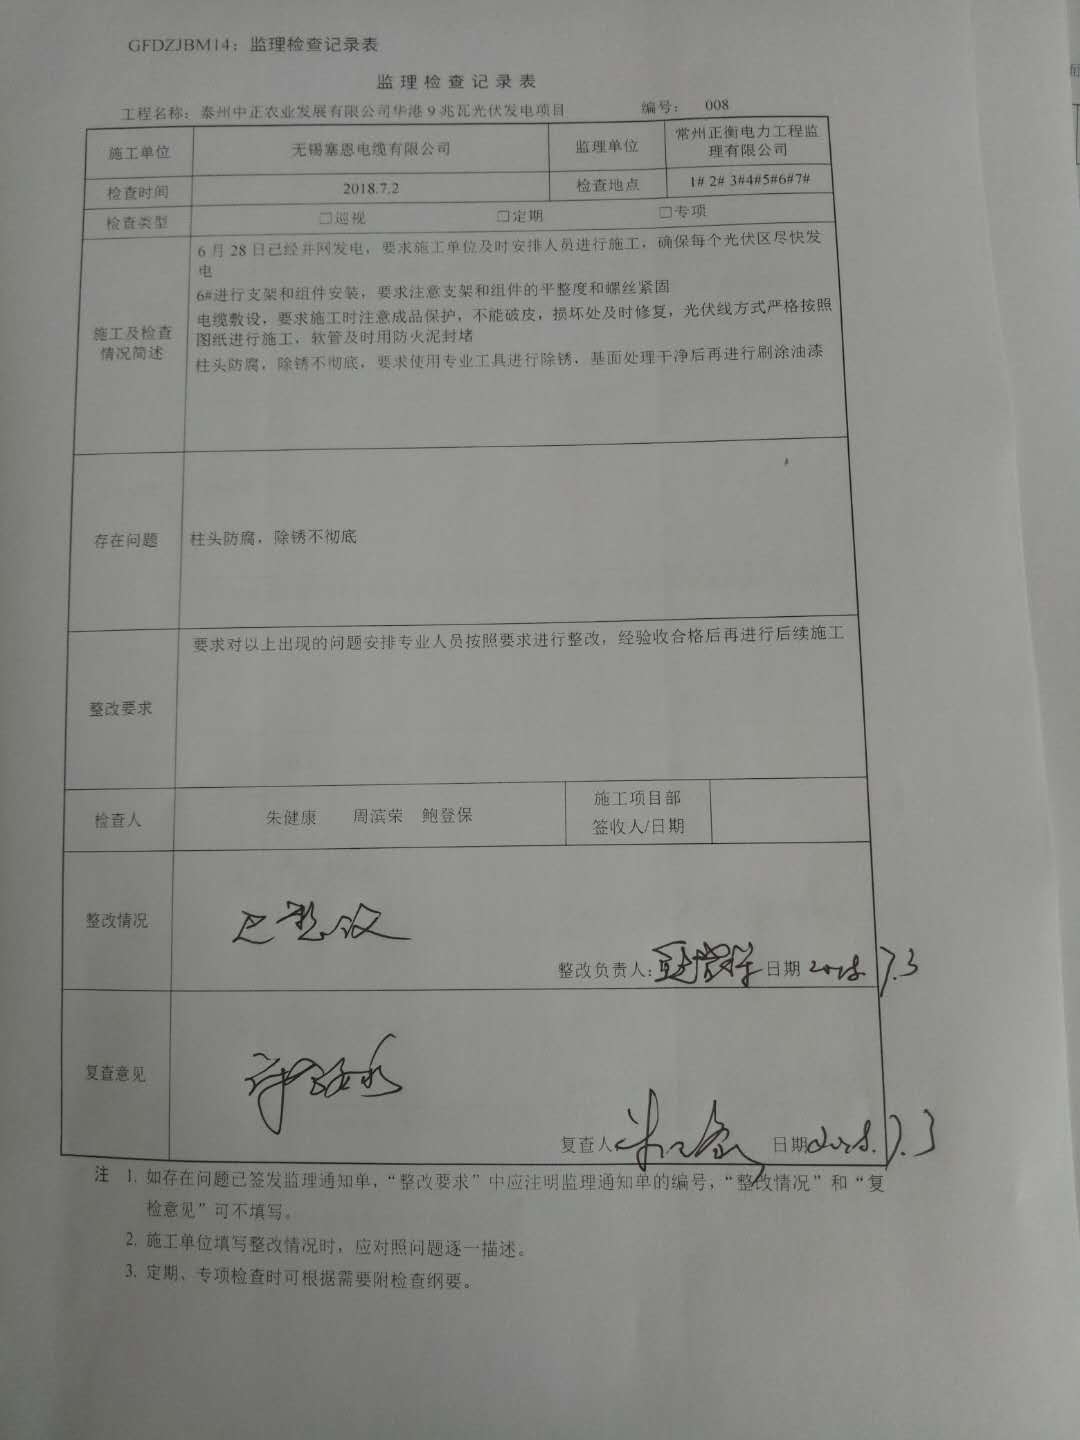 GFDZJBM14：监理检查记录表
监理检查记录表
工程名称：泰州中正农业发展有限公司华港9兆瓦光伏发电项目 编号： 008
施工单位 无锡塞恩电缆有限公司 监理单位 常州正衡电力工程监
理有限公司
检查时间 2018.7.2 检查地点 1# 2# 3#4#5#6#7#
检查类型 □巡视 □定期 □专项
施工及检查
情况简述
6月28日已经并网发电，要求施工单位及时安排人员进行施工，确保每个光伏区尽快发
电
6#进行支架和组件安装，要求注意支架和组件的平整度和螺丝紧固
电缆敷设，要求施工时注意成品保护，不能破皮，损坏处及时修复，光伏线方式严格按照
图纸进行施工，软管及时用防火泥封堵
柱头防腐，除锈不彻底，要求使用专业工具进行除锈，基面处理干净后再进行刷涂油漆
存在问题 柱头防腐，除锈不彻底
整改要求 要求对以上出现的问题安排专业人员按照要求进行整改，经验收合格后再进行后续施工
检查人 朱健康 周滨荣 鲍登保 施工项目部
签收人/日期
整改情况 已整改
整改负责人： 日期 2018.7.3
复查意见
复查人 日期 2018.7.3
注 1. 如存在问题已签发监理通知单，“整改要求”中应注明监理通知单的编号，“整改情况”和“复
检意见”可不填写。
2. 施工单位填写整改情况时，应对照问题逐一描述。
3. 定期、专项检查时可根据需要附检查纲要。